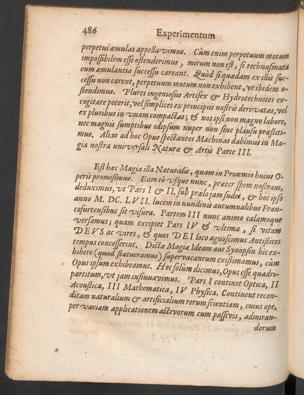 486 Experimentum
perpetui æmulas appellavimus. Cùm enim perpetuum motum
impossibilem esse ostenderimus, mirum non est, si technasmata
eum æmulantia successu careant. Quòd si quædam ex illis suc-
cessu non carent, perpetuum motum non exhibent, ut ibidem o-
stendimus. Plures ingeniosus Artifex & Hydrotechnites ex-
cogitare poterit, vel simplices ex principiis nostris derivatas, vel
ex pluribus in unam compactas; & nos ipsi non magno labore,
nec magnis sumptibus id ipsum nuper non sine plausu præstiti-
mus. Alias ad hoc Opus spectantes Machinas dabimus in Ma-
gia nostra universali Naturæ & Artis Parte III.
Est hæc Magia illa Naturalis, quam in Proœmio huius O-
peris promisimus. Eam eò usque nunc, præter spem nostram,
deduximus, ut Pars I & II, sub prælo jam sudet, & hoc ipso
anno M. DC. LVII. lucem in nundinis autumnalibus Fran-
cofurtensibus sit visura. Partem III nunc animo calamoque
versamus; quam excipiet Pars IV & vltima, si vitam
DEVS ac vires, & quos DEI loco agnoscimus Antistites
tempus concesserint. Dictæ Magiæ Ideam aut Synopsin hic ex-
hibere (quod statueramus) supervacaneum existimamus, cùm
Opus ipsum exhibeamus. Hoc solùm dicimus, Opus esse quadri-
partitum, vt jam insinuavimus. Pars I continet Optica, II
Acoustica, III Mathematica, IV Physica. Continet recon-
ditam naturalium & artificialium rerum scientiam, cuius ope,
per variam applicationem activorum cum passivis, admiran-
dorum